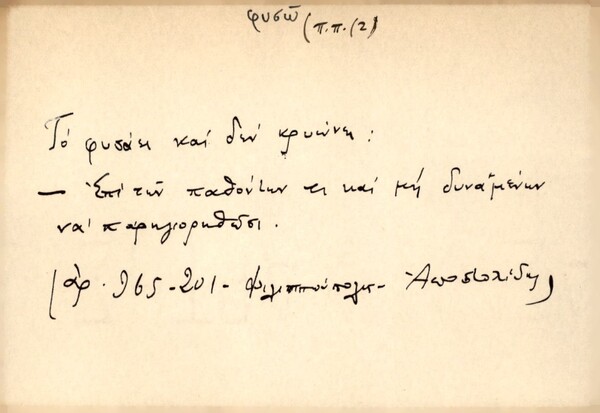 φυσῶ (π.π. (2)
Τό φυσάει καί δέν κρυώνει :
— Ἐπί τῶν παθόντων τι καί μή δυναμένων
νά παρηγορηθῶσι.
(ἀρ. 965-201- Φιλιππούπολις- Ἀποστολίδης)